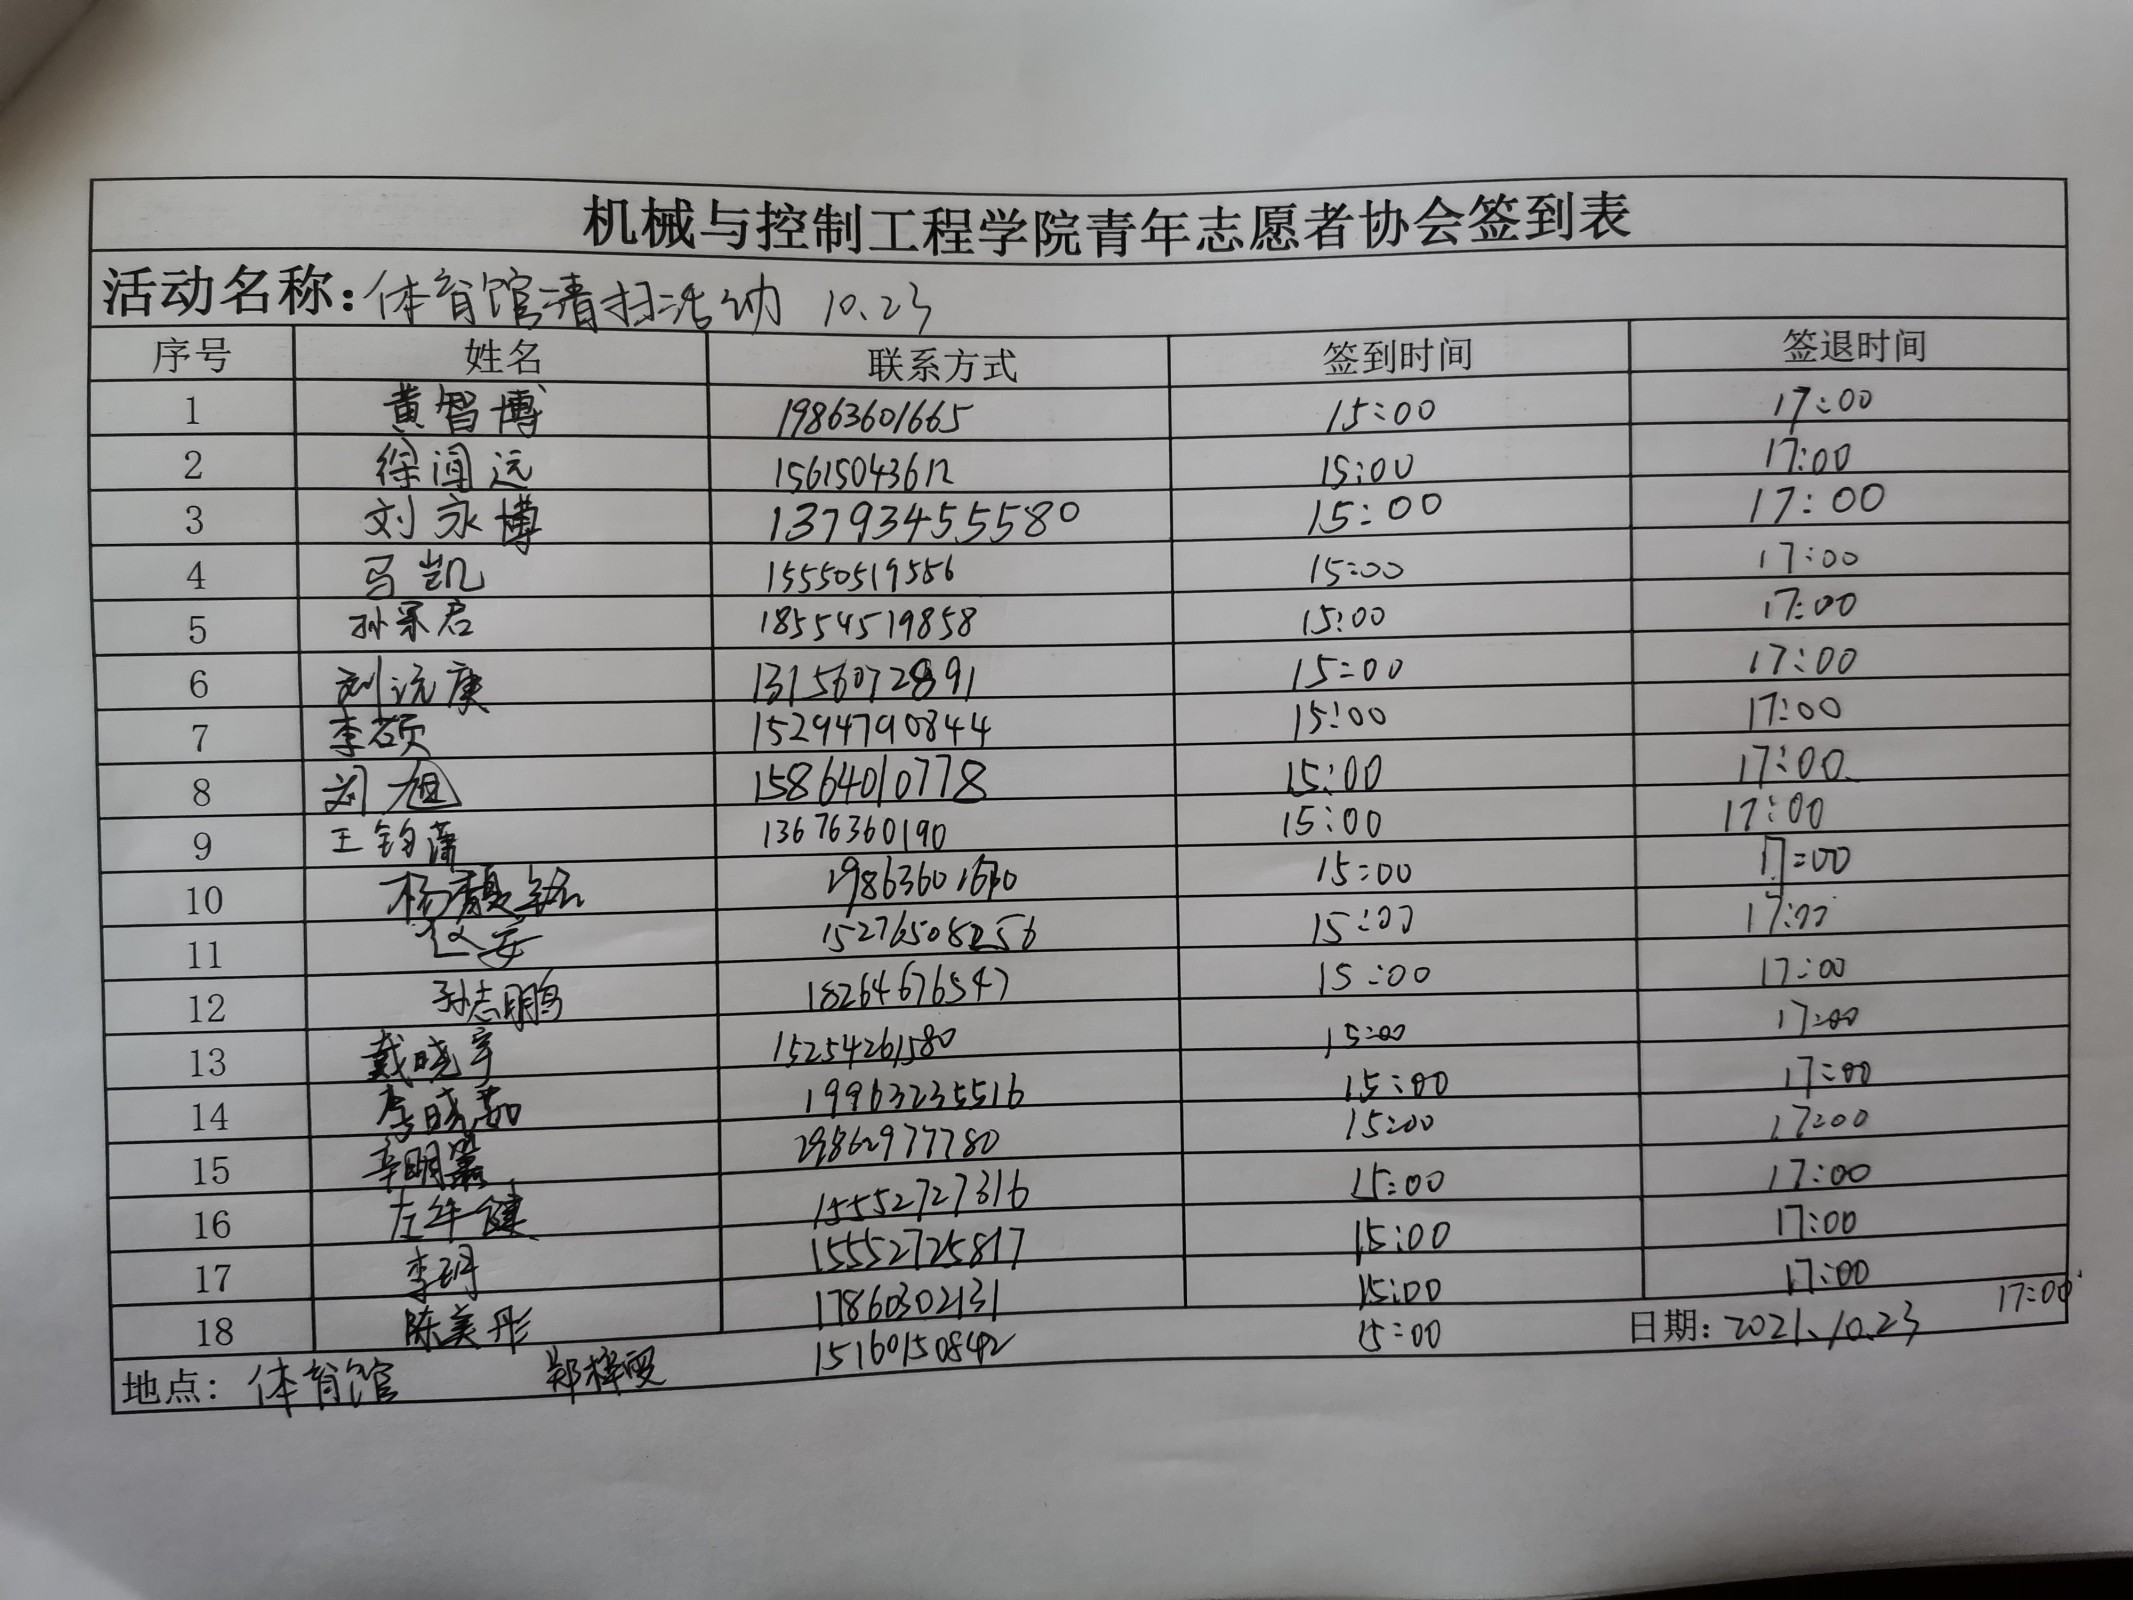 机械与控制工程学院青年志愿者协会签到表
活动名称：体育馆清扫活动 10.23
序号 姓名 联系方式 签到时间 签退时间
1 黄智博 19863601665 15:00 17:00
2 徐闻远 15615043612 15:00 17:00
3 刘永博 13793455580 15:00 17:00
4 马凯 15550519556 15:00 17:00
5 孙君 18554519858 15:00 17:00
6 刘沅庚 13156072891 15:00 17:00
7 李硕 15294790844 15:00 17:00
8 刘旭 15864010778 15:00 17:00
9 王钧蒲 13676360190 15:00 17:00
10 杨 15:00 17:00
11 赵安 15276508256 15:00 17:00
12 孙志鹏 18264676547 15:00 17:00
13 戴晓宇 15254261580 15:00 17:00
14 李晓茹 19963235516 15:00 17:00
15 辛明 19862977780 15:00 17:00
16 左健 15552727316 15:00 17:00
17 李玥 15552725817 15:00 17:00
18 陈美彤 17860302131 15:00 17:00
地点：体育馆 郑梓雯 15160150842 15:00 日期：2021.10.23 17:00